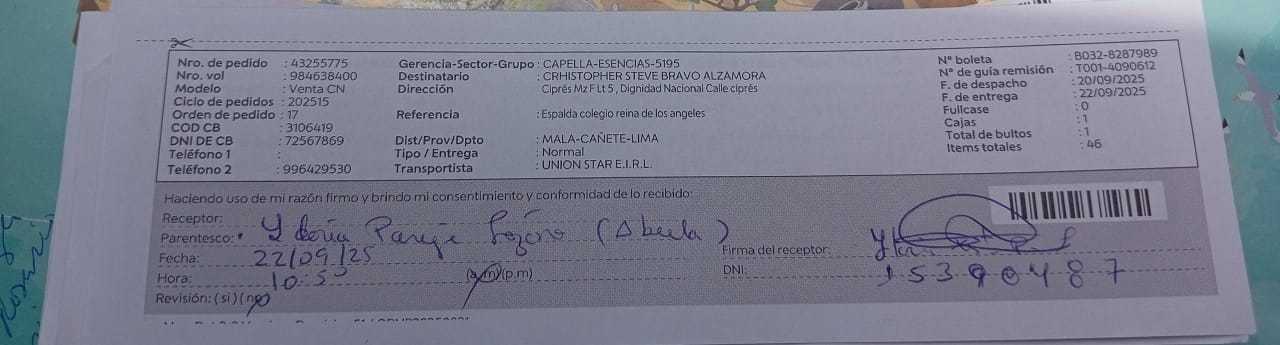 Nro. de pedido : 43255775
Nro. vol : 984638400
Modelo : Venta CN
Ciclo de pedidos : 202515
Orden de pedido : 17
COD CB : 3106419
DNI DE CB : 72567869
Teléfono 1 :
Teléfono 2 : 996429530
Gerencia-Sector-Grupo : CAPELLA-ESENCIAS-5195
Destinatario : CRHISTOPHER STEVE BRAVO ALZAMORA
Dirección : Ciprés Mz F Lt 5 , Dignidad Nacional Calle ciprés
Referencia : Espalda colegio reina de los angeles
Dist/Prov/Dpto : MALA-CAÑETE-LIMA
Tipo / Entrega : Normal
Transportista : UNION STAR E.I.R.L.
N° boleta : B032-8287989
N° de guía remisión : T001-4090612
F. de despacho : 20/09/2025
F. de entrega : 22/09/2025
Fullcase : 0
Cajas : 1
Total de bultos : 1
Items totales : 46
Haciendo uso de mi razón firmo y brindo mi consentimiento y conformidad de lo recibido:
Receptor:
Parentesco: (Abuela)
Fecha: 22/09/25
Hora: 10:5 (a.m)(p.m)
Revisión: (si)(no)
Firma del receptor:
DNI: 15390487